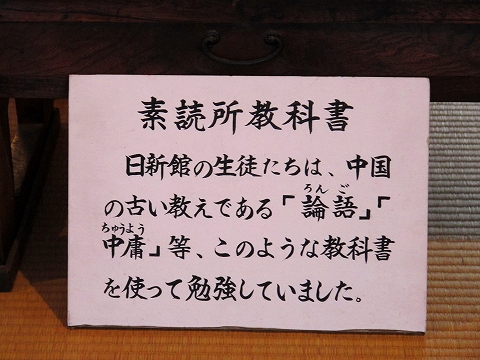 素読所教科書
日新館の生徒たちは、中国
の古い教えである「論語」「
中庸」等、このような教科書
を使って勉強していました。